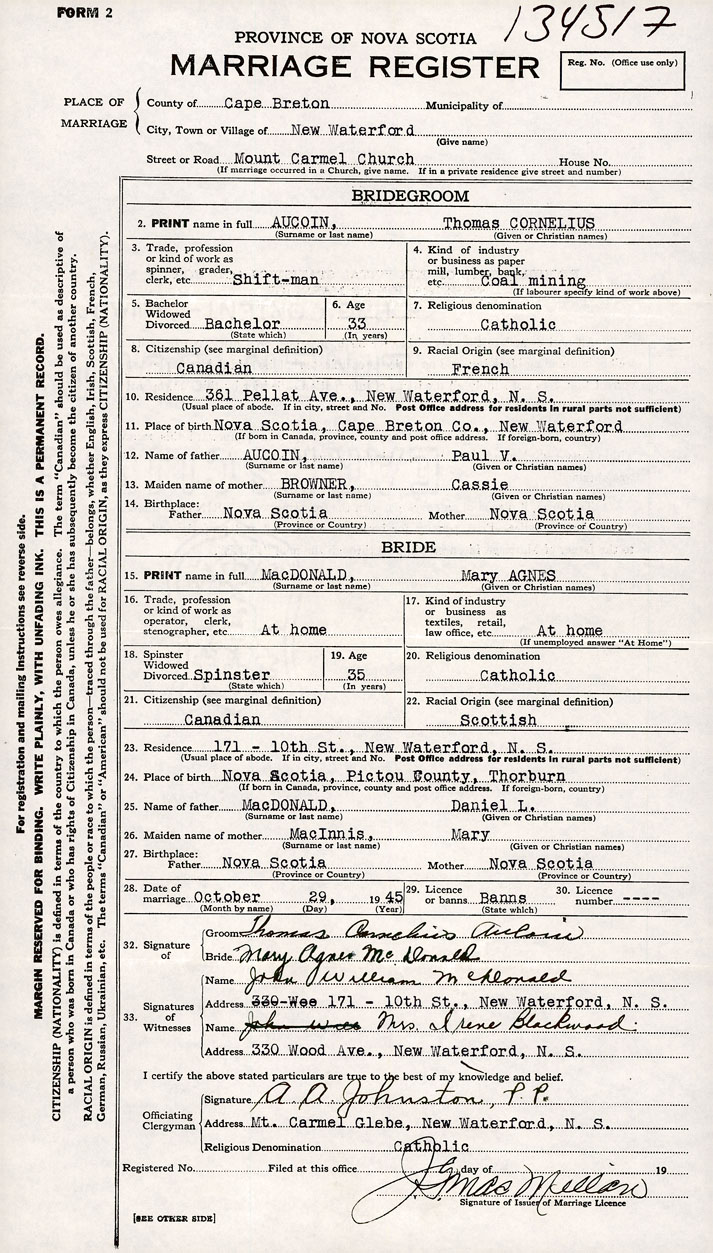 FORM 2
134517
PROVINCE OF NOVA SCOTIA
MARRIAGE REGISTER
Reg. No. (Office use only)
PLACE OF MARRIAGE
County of Cape Breton Municipality of
City, Town or Village of New Waterford
(Give name)
Street or Road Mount Carmel Church House No.
(If marriage occurred in a Church, give name. If in a private residence give street and number)
BRIDEGROOM
2. PRINT name in full AUCOIN, Thomas CORNELIUS
(Surname or last name) (Given or Christian names)
3. Trade, profession or kind of work as spinner, grader, clerk, etc. Shift-man
4. Kind of industry or business as paper mill, lumber, bank, etc. Coal mining
(If labourer specify kind of work above)
5. Bachelor Widowed Divorced Bachelor
(State which)
6. Age 33
(In years)
7. Religious denomination
Catholic
8. Citizenship (see marginal definition)
Canadian
9. Racial Origin (see marginal definition)
French
10. Residence 361 Pellat Ave., New Waterford, N. S.
(Usual place of abode. If in city, street and No. Post Office address for residents in rural parts not sufficient)
11. Place of birth Nova Scotia, Cape Breton Co., New Waterford
(If born in Canada, province, county and post office address. If foreign-born, country)
12. Name of father AUCOIN, Paul V.
(Surname or last name) (Given or Christian names)
13. Maiden name of mother BROWNER, Cassie
(Surname or last name) (Given or Christian names)
14. Birthplace: Father Nova Scotia Mother Nova Scotia
(Province or Country) (Province or Country)
BRIDE
15. PRINT name in full MacDONALD, Mary AGNES
(Surname or last name) (Given or Christian names)
16. Trade, profession or kind of work as operator, clerk, stenographer, etc. At home
17. Kind of industry or business as textiles, retail, law office, etc. At home
(If unemployed answer "At Home")
18. Spinster Widowed Divorced Spinster
(State which)
19. Age 35
(In years)
20. Religious denomination
Catholic
21. Citizenship (see marginal definition)
Canadian
22. Racial Origin (see marginal definition)
Scottish
23. Residence 171 - 10th St., New Waterford, N. S.
(Usual place of abode. If in city, street and No. Post Office address for residents in rural parts not sufficient)
24. Place of birth Nova Scotia, Pictou County, Thorburn
(If born in Canada, province, county and post office address. If foreign-born, country)
25. Name of father MacDONALD, Daniel L.
(Surname or last name) (Given or Christian names)
26. Maiden name of mother MacInnis, Mary
(Surname or last name) (Given or Christian names)
27. Birthplace: Father Nova Scotia Mother Nova Scotia
(Province or Country) (Province or Country)
28. Date of marriage October 29, 1945
(Month by name) (Day) (Year)
29. Licence or banns Banns
(State which)
30. Licence number ----
32. Signature of
Groom Thomas Cornelius Aucoin
Bride Mary Agnes McDonald
33. Signatures of Witnesses
Name John William McDonald
Address 330 Woo 171 - 10th St., New Waterford, N. S.
Name John Mrs. Irene Blackwood.
Address 330 Wood Ave., New Waterford, N. S.
I certify the above stated particulars are true to the best of my knowledge and belief.
Officiating Clergyman
Signature A A Johnston, P. P.
Address Mt. Carmel Glebe, New Waterford, N. S.
Religious Denomination Catholic
Registered No. Filed at this office day of 19
Signature of Issuer of Marriage Licence
[SEE OTHER SIDE]
For registration and mailing instructions see reverse side.
MARGIN RESERVED FOR BINDING. WRITE PLAINLY, WITH UNFADING INK. THIS IS A PERMANENT RECORD.
CITIZENSHIP (NATIONALITY) is defined in terms of the country to which the person owes allegiance. The term "Canadian" should be used as descriptive of
a person who was born in Canada or who has rights of Citizenship in Canada, unless he or she has subsequently become the citizen of another country.
RACIAL ORIGIN is defined in terms of the people or race to which the person—traced through the father—belongs, whether English, Irish, Scottish, French,
German, Russian, Ukrainian, etc. The terms "Canadian" or "American" should not be used for RACIAL ORIGIN, as they express CITIZENSHIP (NATIONALITY).